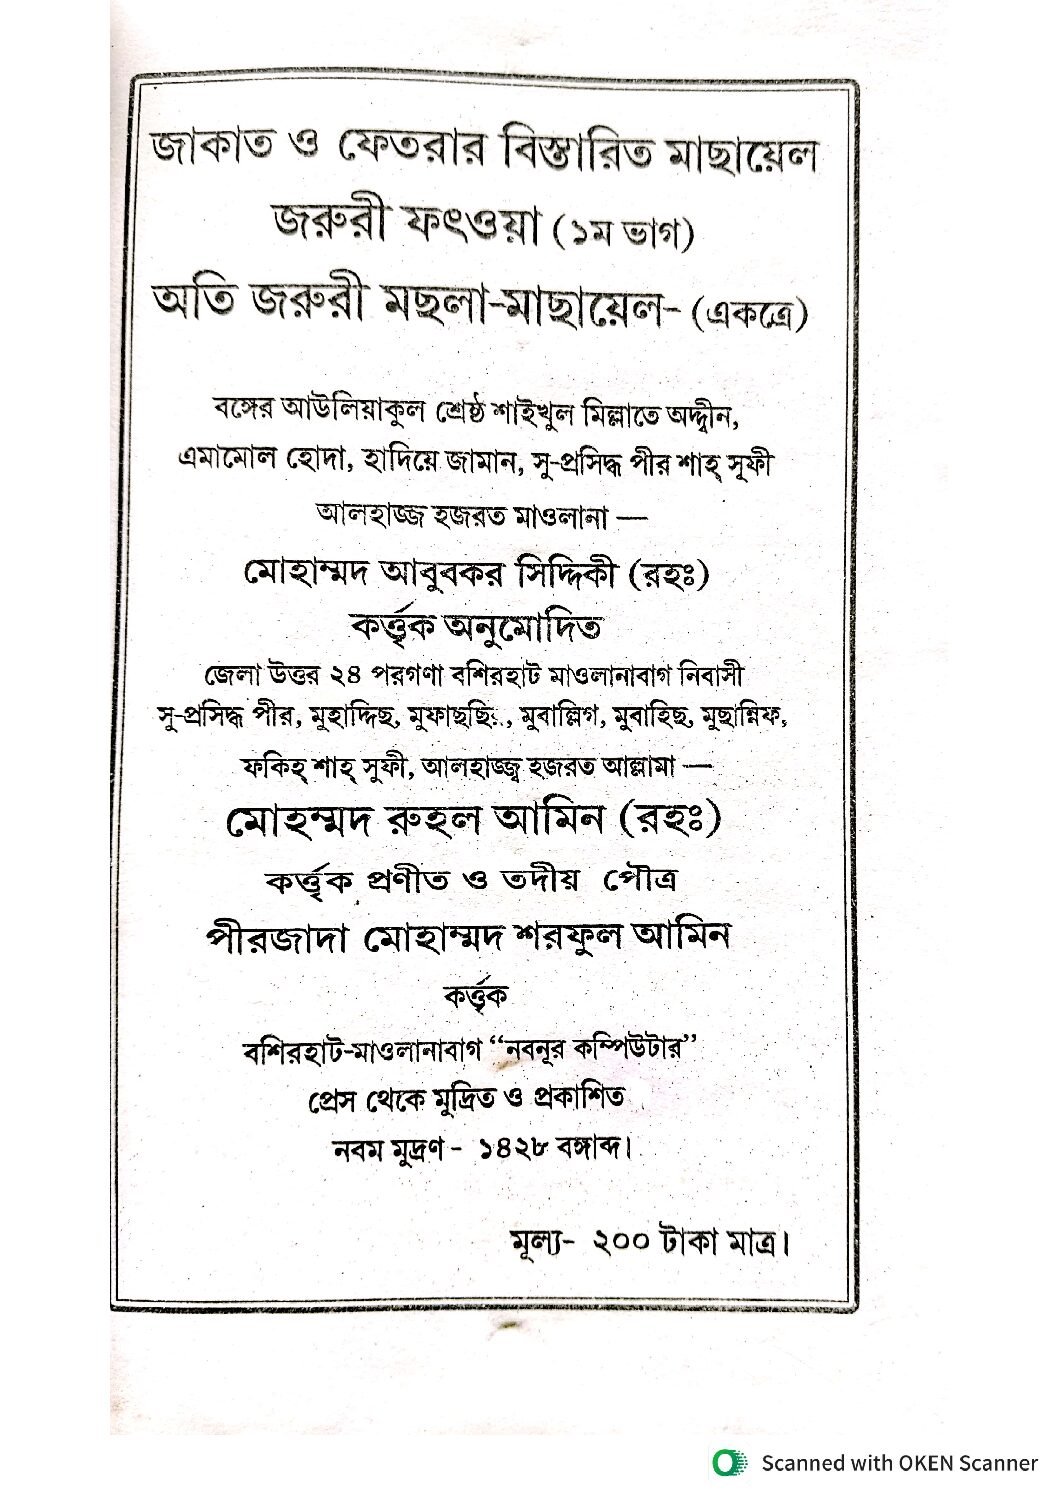 জাকাত ও ফেতরার বিস্তারিত মাছায়েল
জরুরী ফৎওয়া (১ম ভাগ)
অতি জরুরী মছলা-মাছায়েল- (একত্রে)
বঙ্গের আউলিয়াকুল শ্রেষ্ঠ শাইখুল মিল্লাতে অদ্দ্বীন,
এমামোল হোদা, হাদিয়ে জামান, সু-প্রসিদ্ধ পীর শাহ্ সূফী
আলহাজ্জ হজরত মাওলানা —
মোহাম্মদ আবুবকর সিদ্দিকী (রহঃ)
কর্ত্তৃক অনুমোদিত
জেলা উত্তর ২৪ পরগণা বশিরহাট মাওলানাবাগ নিবাসী
সু-প্রসিদ্ধ পীর, মুহাদ্দিছ, মুবাল্লিগ, মুবাহিছ, মুছান্নিফ,
ফকিহ্ শাহ্ সুফী, আলহাজ্জ্ব হজরত আল্লামা —
মোহম্মদ রুহল আমিন (রহঃ)
কর্ত্তৃক প্রণীত ও তদীয় পৌত্র
পীরজাদা মোহাম্মদ শরফুল আমিন
কর্ত্তৃক
বশিরহাট-মাওলানাবাগ “নবনূর কম্পিউটার”
প্রেস থেকে মুদ্রিত ও প্রকাশিত
নবম মুদ্রণ - ১৪২৮ বঙ্গাব্দ।
মূল্য- ২০০ টাকা মাত্র।
Scanned with OKEN Scanner